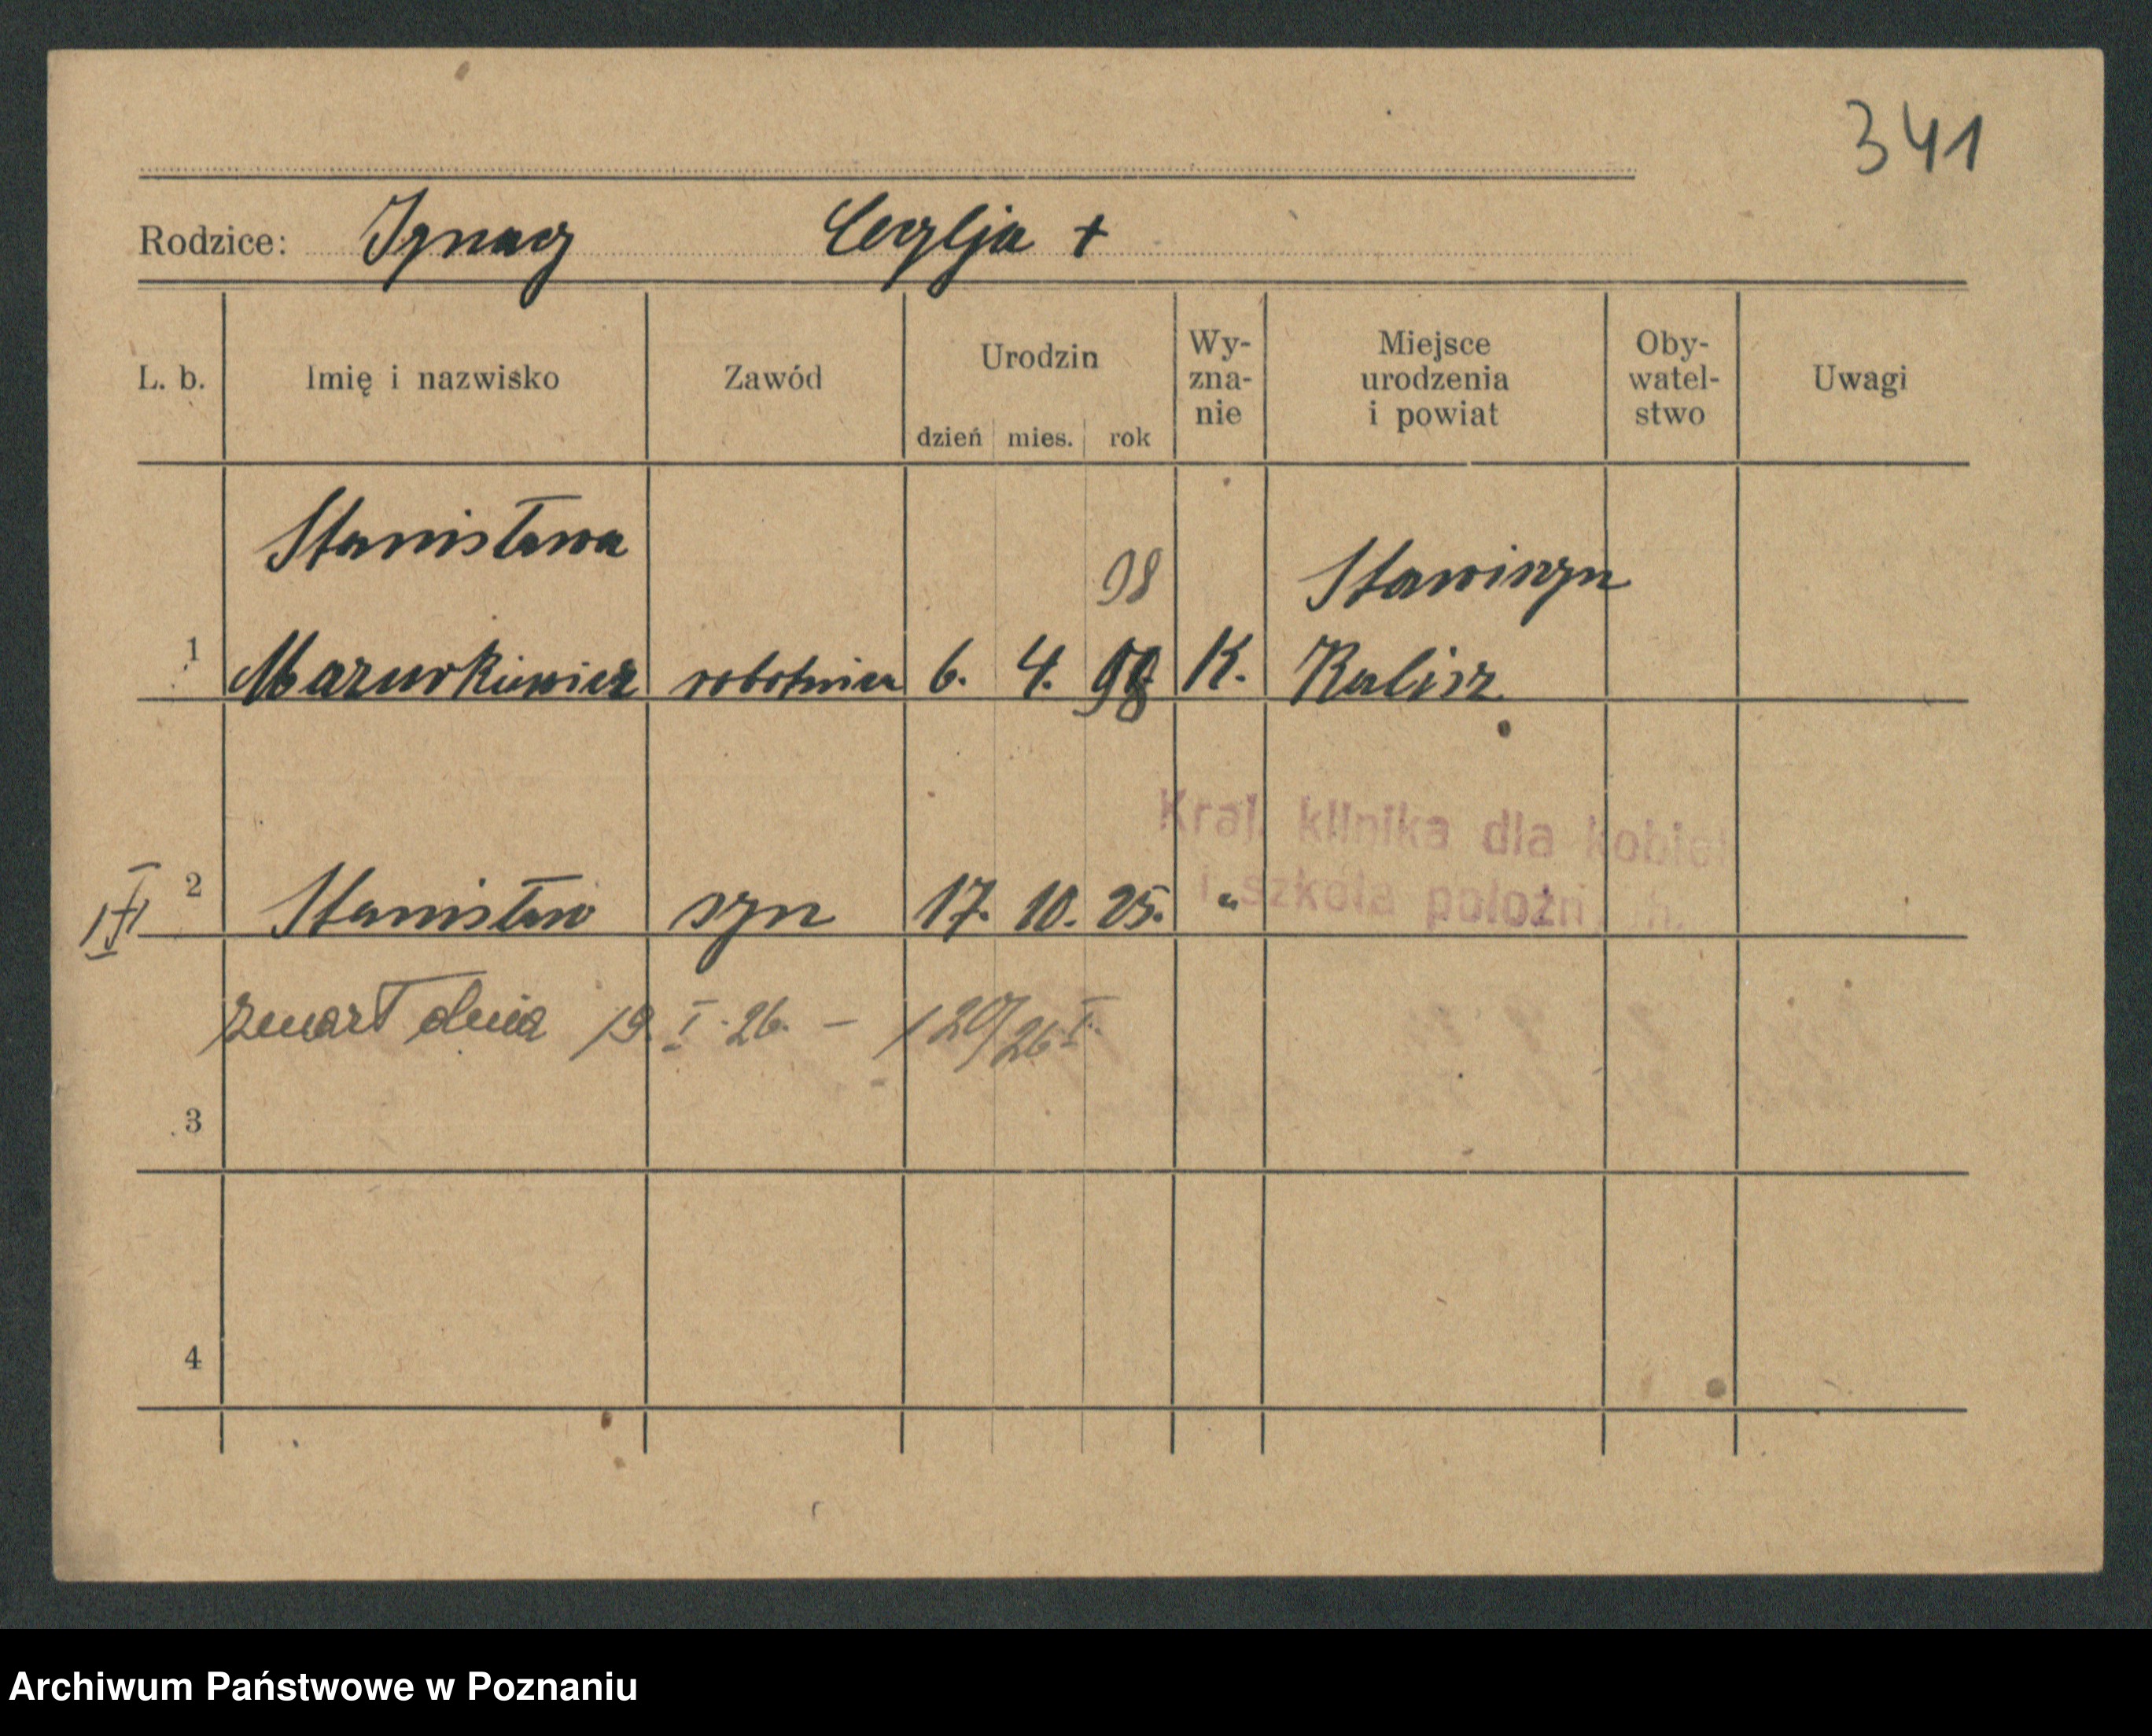 341
Rodzice: Ignacy Cecylja +
L. b. Imię i nazwisko Zawód Urodzin dzień mies. rok Wy-zna-nie Miejsce urodzenia i powiat Oby-watel-stwo Uwagi
Stanisława 98 Stawiszyn
1 Mazurkiewicz robotnica 6. 4. 98 K. Kalisz
Kraj. klinika dla kobiet
i szkoła położn
2 Stanisław syn 17. 10. 25. "
zmarł dnia 19. I. 26. – 129/26 I.
3
4
Archiwum Państwowe w Poznaniu